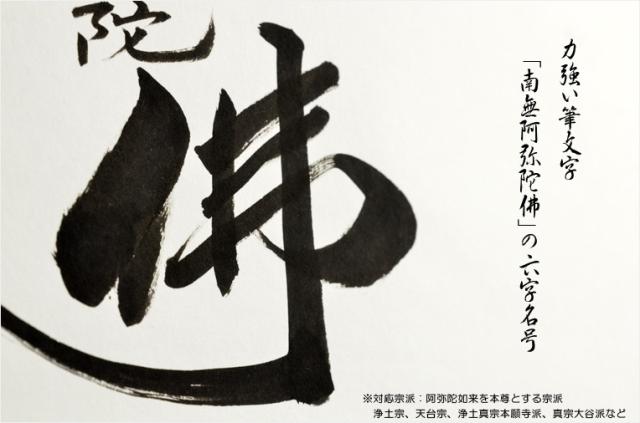 陀
佛
力強い筆文字
「南無阿弥陀佛」の六字名号
※対応宗派：阿弥陀如来を本尊とする宗派
浄土宗、天台宗、浄土真宗本願寺派、真宗大谷派など